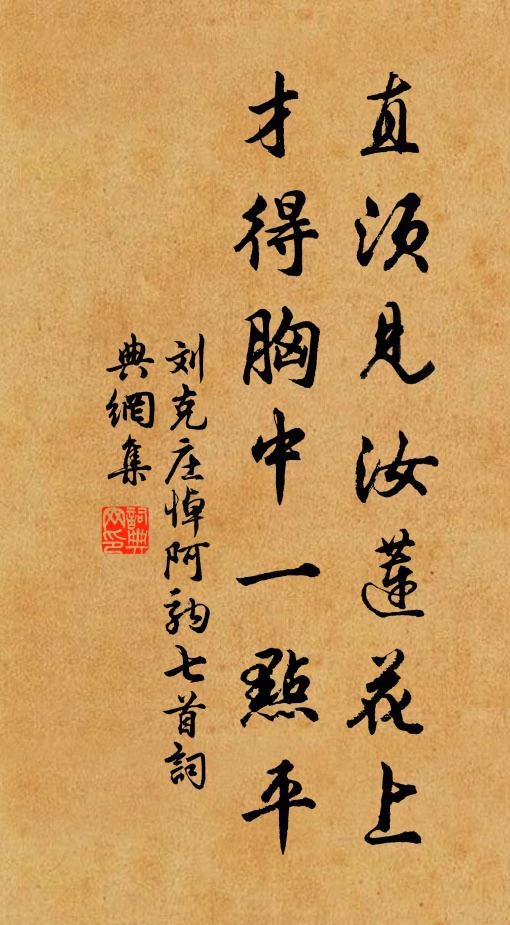 直須見汝蓮花上
才得胸中一點平
刘克庄悼阿駒七首詞
典網集
詞典網印